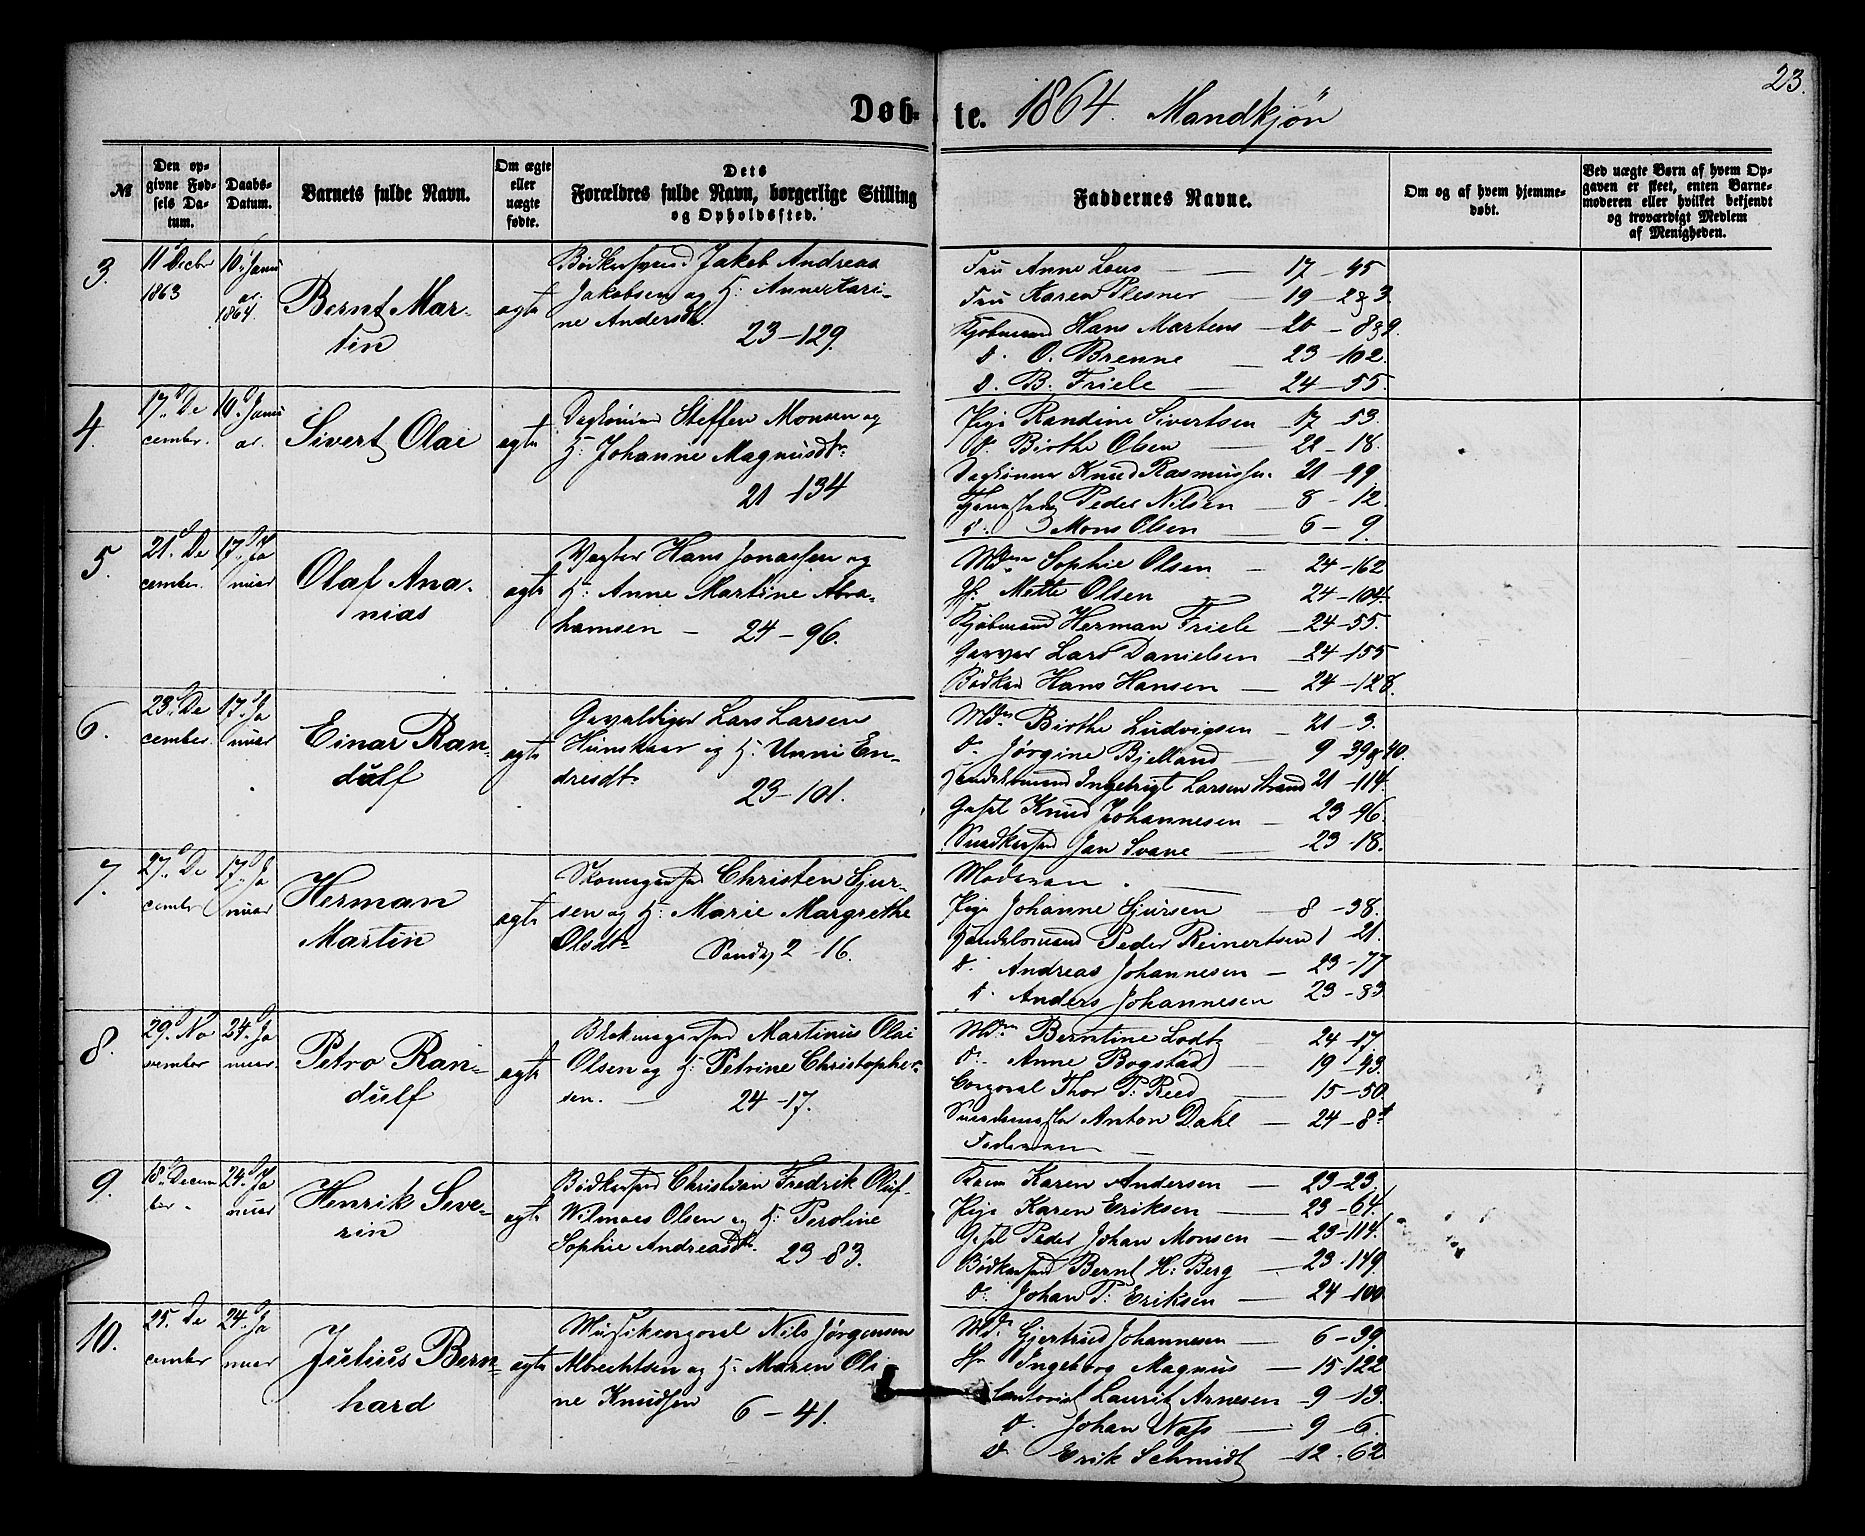 23.
Døb- te. 1864. Mandkjøn
№
Den opgivne Fødsels Datum.
Daabs-Datum.
Barnets fulde Navn.
Om ægte eller uægte fødte.
Dets Forældres fulde Navn, borgerlige Stilling og Opholdssted.
Faddernes Navne.
Om og af hvem hjemmedøbt.
Ved uægte Børn af hvem Opgaven er skeet, enten Barnemoderen eller hvilket bekjendt og troværdigt Medlem af Menigheden.
3.
11 Decbr 1863
10 Januar 1864.
Bernt Martin
ægte
Bødkersvend Jakob Andreas
Jakobsen og H: Anne Kari-
ne Andersdr.
23-129.
Fru Anne Lous — 17-45
Fru Karen Plesner — 19-2&3
Kjøbmand Hans Martens — 20-8&9.
d. O. Brenne — 23-102.
d. B. Friele — 24-55.
4.
17. De
cember.
10. Janu
ar.
Sivert Olai
ægte
Steffen Monsen og
H: Johanne Magnusdtr
21-134
Pige Randine Sivertsen — 17-53.
d. Birthe Olsen — 22-18.
Knud Rasmussen — 21-99.
Peder Nilsen — 8-12.
d. Mons Olsen — 6-9.
5.
21. De
cember.
17. Ja
nuar
Olaf Ana-
nias
ægte
Vægter Hans Jonassen og
H: Anne Martine Abra-
hamsen — 24-96.
Mdm Sophie Olsen — 24-162
Jf. Mette Olsen — 24-104.
Kjøbmand Herman Friele — 24-55.
Garver Lars Danielsen — 24-155
Bødker Hans Hansen — 24-128.
6.
23. De
cember.
17. Ja
nuar
Einar Ran-
dulf
ægte
Gevaldiger Lars Larsen
Hunskaar og H: Unni En-
dresdtr
23-101.
Mdm Birthe Ludvigsen — 21-3.
d. Jørgine Bjelland — 9-39&40.
Handelsmand Ingebrigt Larsen Strand 21-114.
Gesel Knud Johannesen — 23-96.
Jan Svane — 23-18.
7.
27. De
cember
17. Ja
nuar
Herman
Martin
ægte
Skomagersvend Christen Sjur-
sen og H: Marie Margrethe
Olsdtr
2-16.
Moderen
Pige Johanne Sjursen — 8-38.
Handelsmand Peder Reinertsen 1-21.
d. Andreas Johannesen — 23-77
d. Anders Johannesen 23-83
8.
29. No
vember
24. Ja
nuar.
Petro Ran-
dulf
ægte
Blokmagersvend Martinus Olai
Olsen og H: Petrine Christophe-
sen. — 24-17.
Mdm Berntine Lodtz — 24-17.
d. Anne Bogstad — 19-93.
Corporal Thor P. Reed — 15-50
Anton Dahl — 24-8
Faderen
9.
18. Decem
ber.
24. Ja
nuar
Henrik Seve-
rin
ægte
Bødkersvend Christian Fredrik Oluf
Wilmaes Olsen og H: Peroline
Sophie Andreasdtr.
23-83.
Karen Andersen — 23-23.
Pige Karen Eriksen — 23-64.
Gesel Peder Johan Monsen — 23-114.
Bødkersvend Bernt H: Berg — 23-149.
d. Johan P: Eriksen — 24-100
10.
25. De
cember
24. Ja
nuar
Julius Bern-
hard
ægte
Musikcorporal Nils Jørgensen
Albrechtsen og H: Maren Oli
ne Knudsen
6-41.
Md. Gjertrud Johannesen — 6-39.
Jfr Ingeborg Magnus — 15-122
Contorist Lauritz Arnesen — 9-13.
d. Johan Næss — 9-6.
d. Erik Schmidt — 12-62